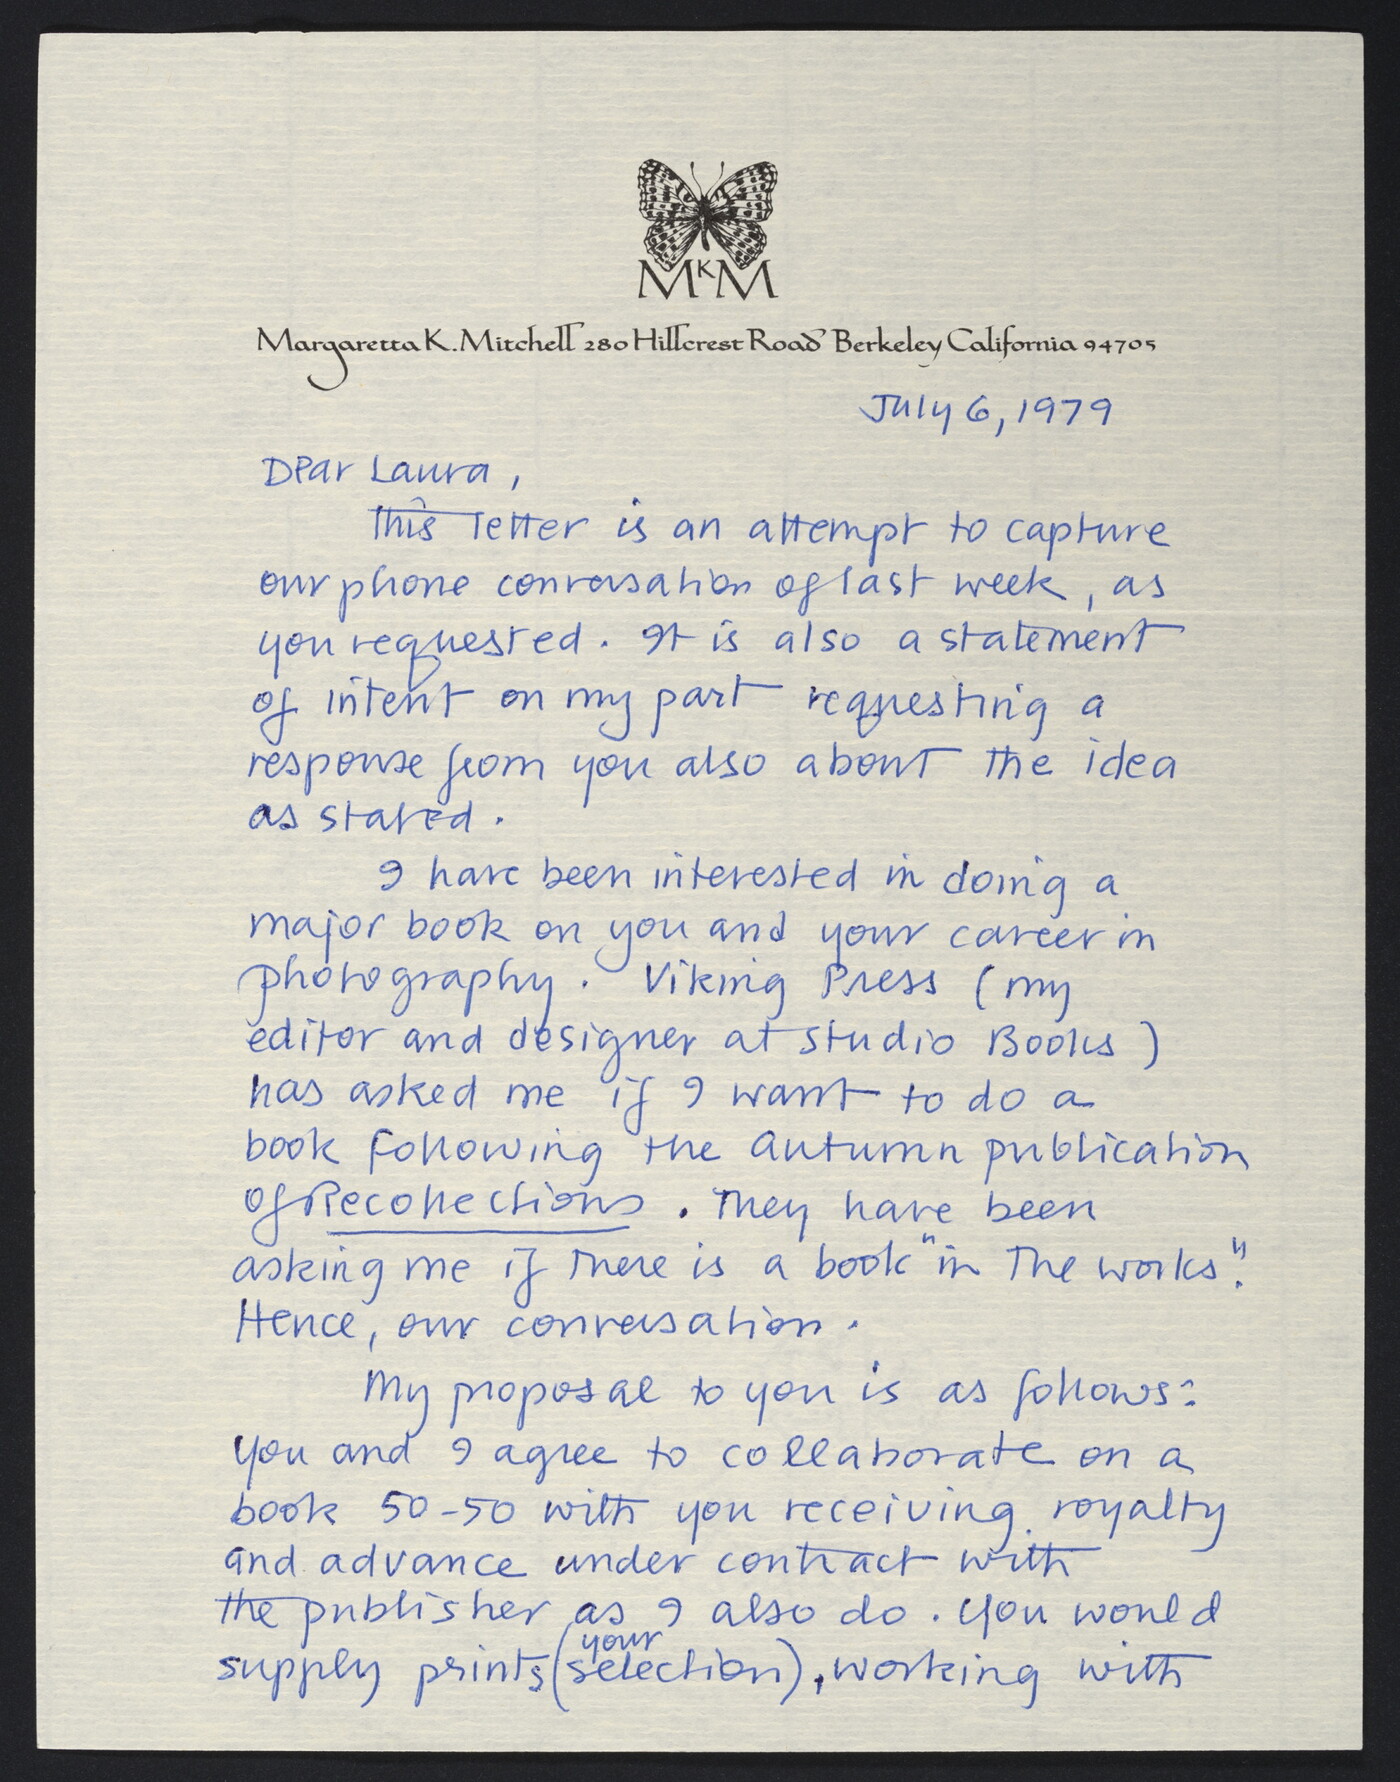 MKM
Margaretta K. Mitchell 280 Hillcrest Road Berkeley California 94705
July 6, 1979
Dear Laura,
This letter is an attempt to capture
our phone conversation of last week, as
you requested. It is also a statement
of intent on my part requesting a
response from you also about the idea
as stated.
I have been interested in doing a
major book on you and your career in
photography. Viking Press (my
editor and designer at Studio Books)
has asked me if I want to do a
book following the autumn publication
of Recollections. They have been
asking me if there is a book "in the works".
Hence, our conversation.
My proposal to you is as follows:
You and I agree to collaborate on a
book 50-50 with you receiving royalty
and advance under contract with
the publisher as I also do. You would
supply prints (your selection), working with